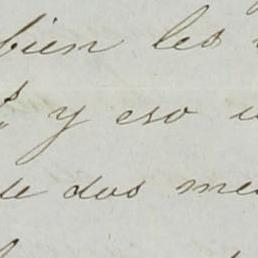 bien les
y eso
de dos me